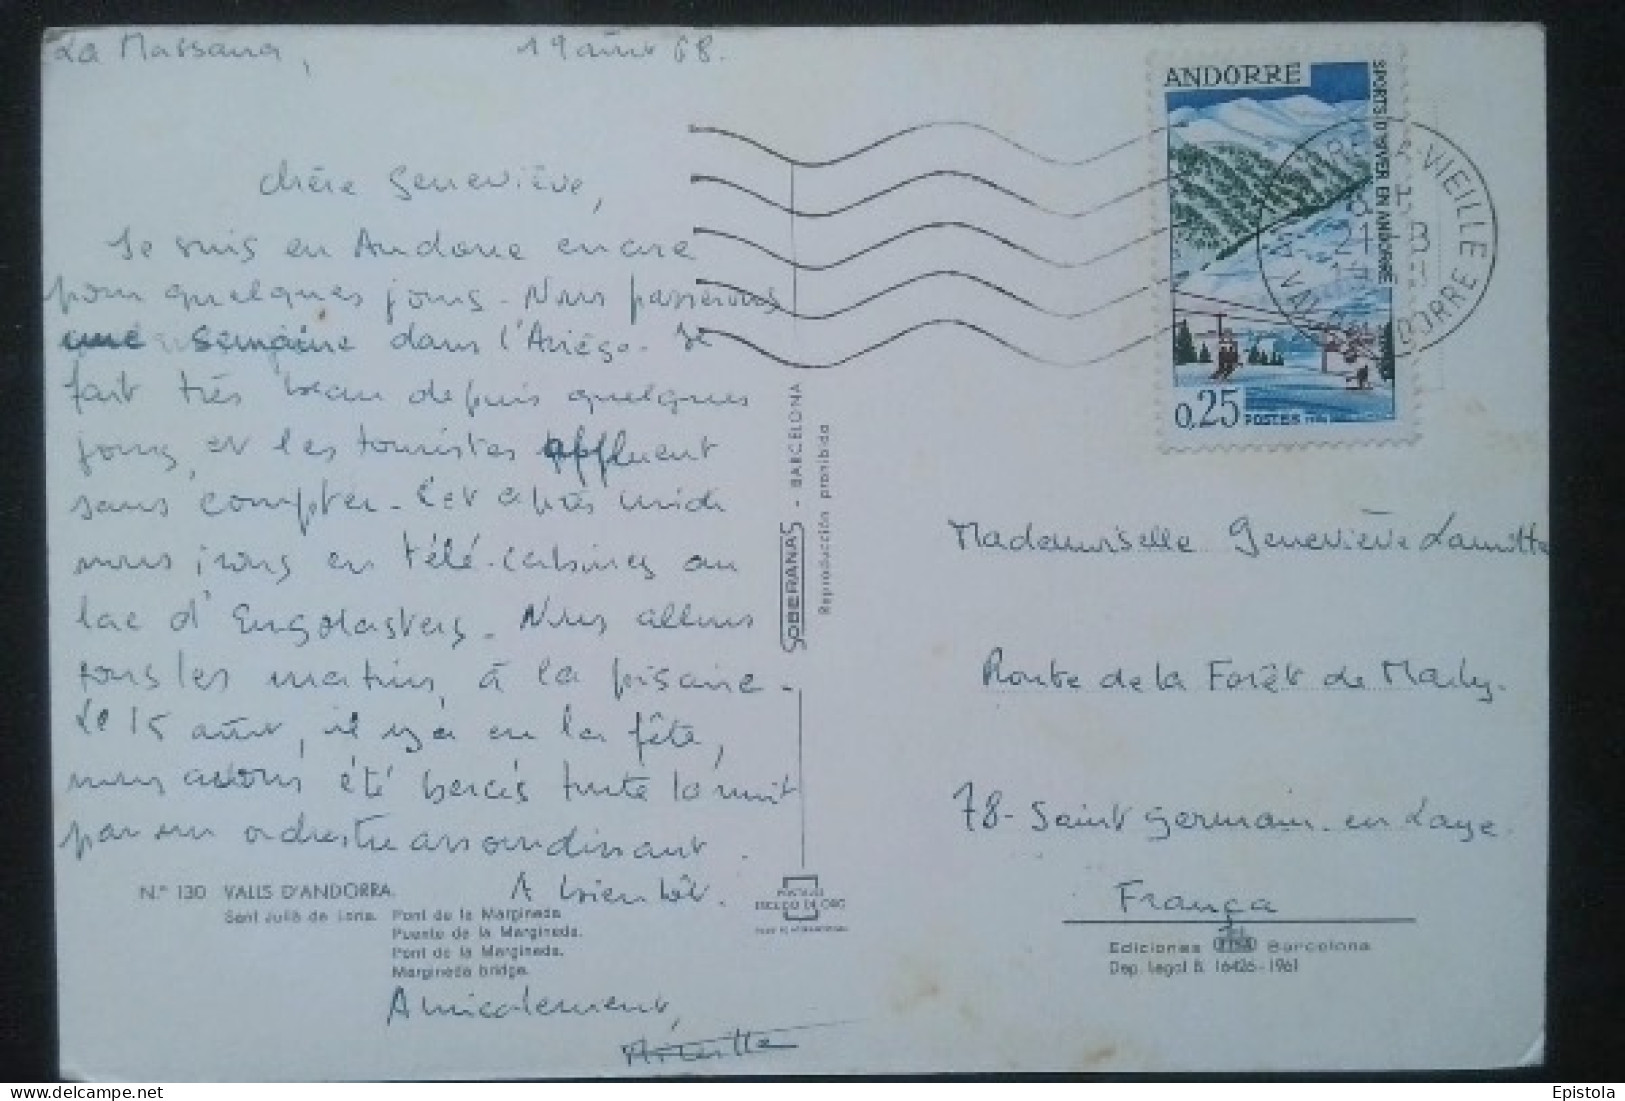 La Massana, 19 août 68.
Chère Geneviève,
Je suis en Andorre encore
pour quelques jours. Nous passerons
une semaine dans l'Ariège. Il
fait très beau depuis quelques
jours, et les touristes affluent
sans compter. Cet après midi
nous irons en télé-cabines au
lac d'Engolasters. Nous allons
tous les matins, à la piscine.
Le 15 août, il y a eu la fête,
nous avons été bercés toute la nuit
par un orchestre assourdissant.
A bientôt.
Amicalement,
N.º 130 VALLS D'ANDORRA.
Sant Juliá de Loria. Pont de la Margineda.
Puente de la Margineda.
Pont de la Margineda.
Margineda bridge.
SOBERANAS - BARCELONA
Reproducción prohibida
POSTALES
ESCUDO DE ORO
ANDORRE
SPORTS D'HIVER EN ANDORRE
0,25 POSTES
VIEILLE
Mademoiselle Geneviève
Route de la Forêt de Marly.
78- Saint Germain-en Laye.
França
Ediciones FISA Barcelona
Dep. Legal B. 16426-1961
Epistola